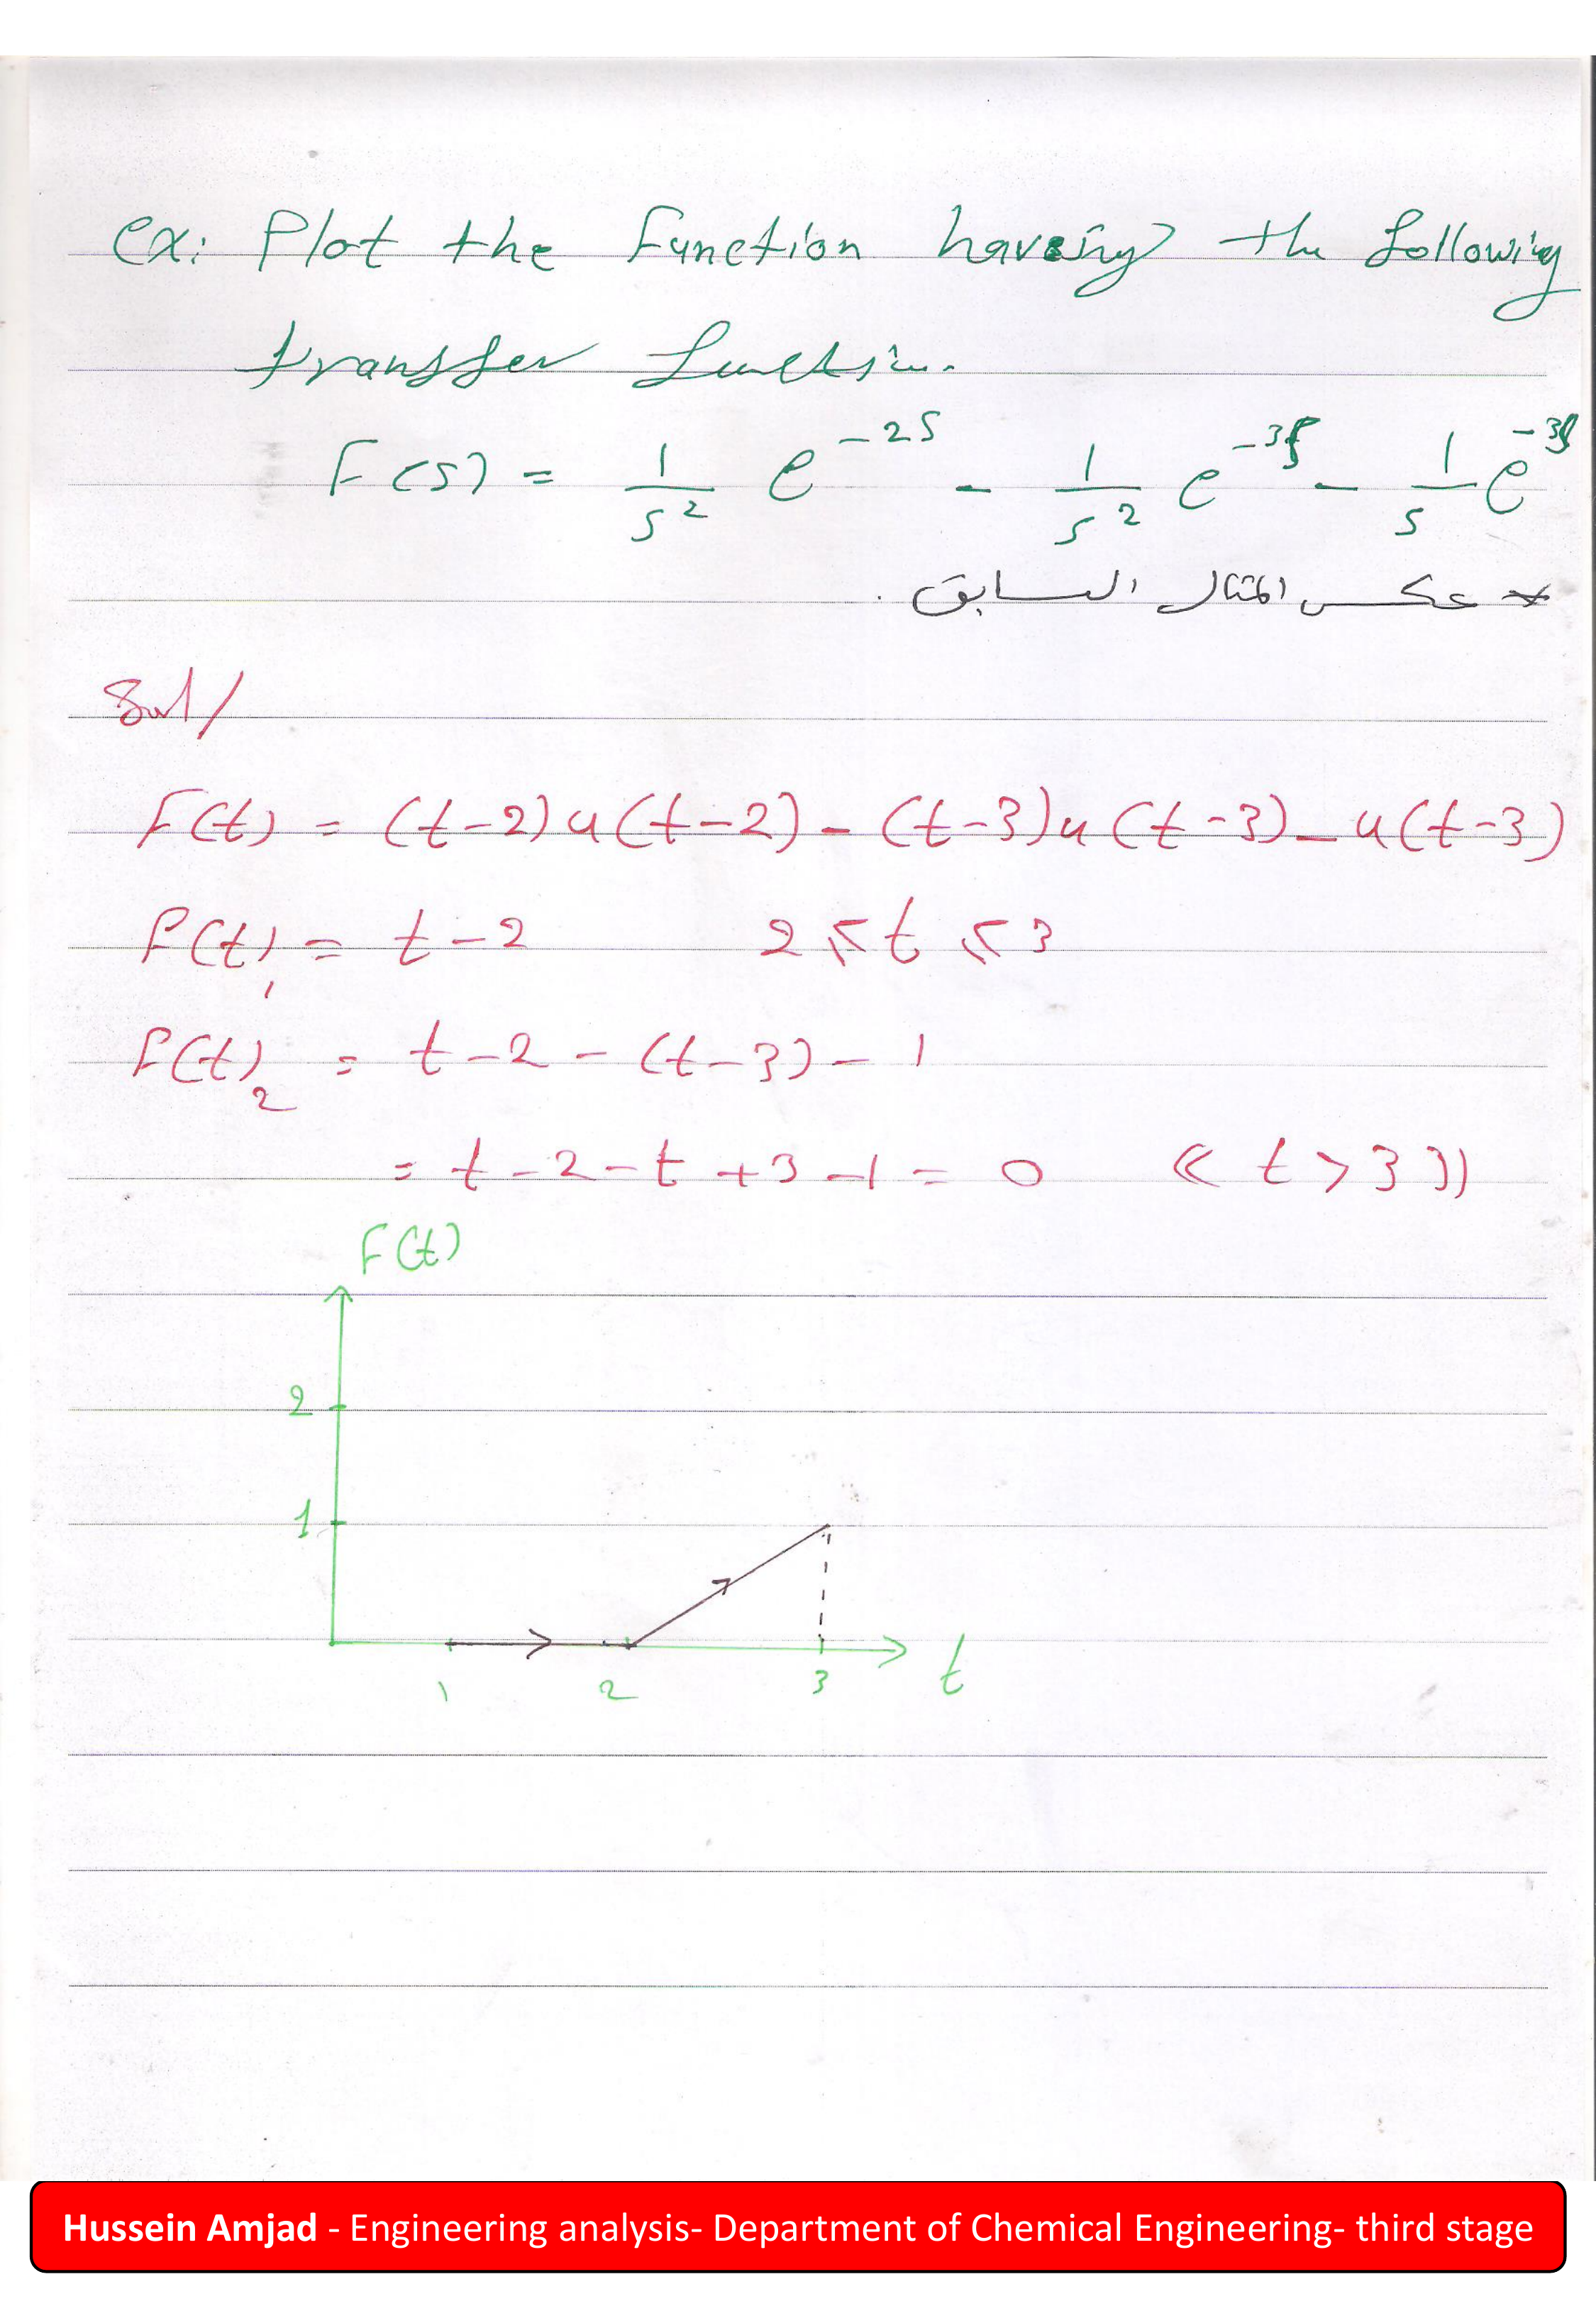 ex: Plot the Function having the following
transfer function.
F(s) = 1/s² e^-2s - 1/s² e^-3s - 1/s e^-3s
* عكس المثال السابق .
Sol/
F(t) = (t-2)u(t-2) - (t-3)u(t-3) - u(t-3)
F(t)₁ = t-2 2 ≤ t ≤ 3
F(t)₂ = t-2 - (t-3) - 1
= t-2-t+3-1 = 0 « t > 3 »
F(t)
2
1
1 2 3 t
Hussein Amjad - Engineering analysis- Department of Chemical Engineering- third stage